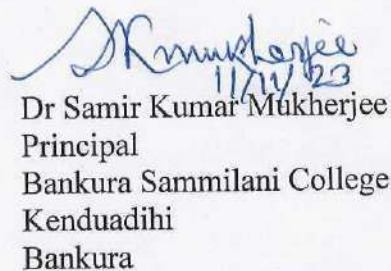 SKmukherjee
11/11/23
Dr Samir Kumar Mukherjee
Principal
Bankura Sammilani College
Kenduadihi
Bankura